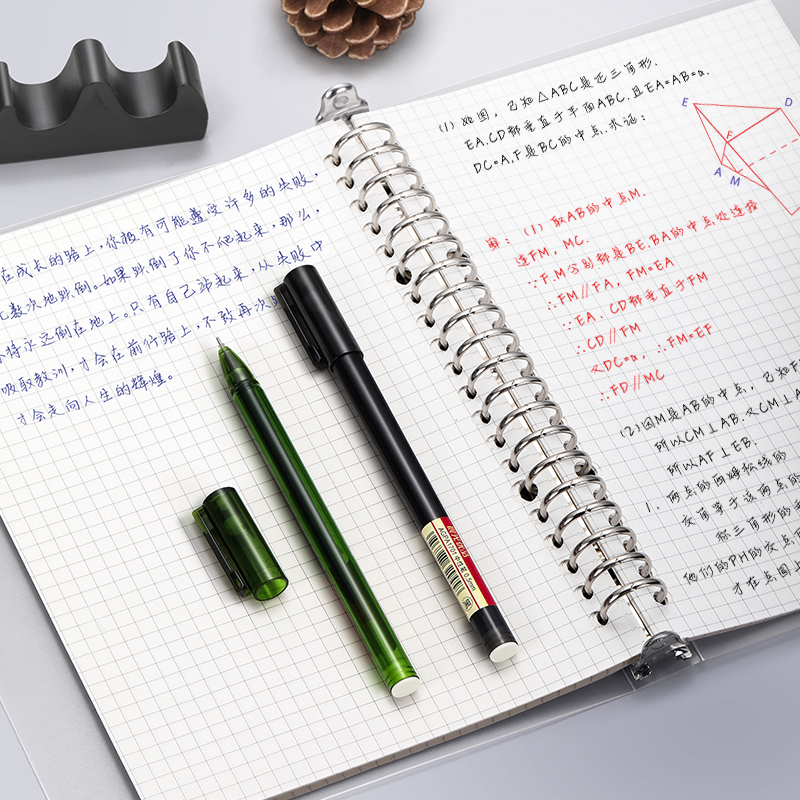 在成长的路上,你极有可能遭受许多的失败,
无数次地跌倒。如果跌倒了你不爬起来,那么,
将永远倒在地上。只有自己站起来,从失败中
吸取教训,才会在前行路上,不致再次
才会走向人生的辉煌。
(1) 如图,已知△ABC是正三角形.
EA.CD都垂直于平面ABC.且EA=AB=a.
DC=A,F是BC的中点.求证:
E
D
F
A
M
解:(1) 取AB的中点M.
连FM, MC.
∵F.M分别都是BE.BA的中点处连接
∴FM∥FA, FM=EA
∵EA. CD都垂直于FM
∴CD∥FM
又DC=a, ∴FM=EF
∴FD∥MC
(2)因M是AB的中点,已知F
所以CM⊥AB.又CM⊥A
所以AF⊥EB.
1. 两点的两
交角等于该两点的
称三角形的
他们的PH的交点
才在点圆上
AGPA1701 中性笔 0.5mm
(黑)